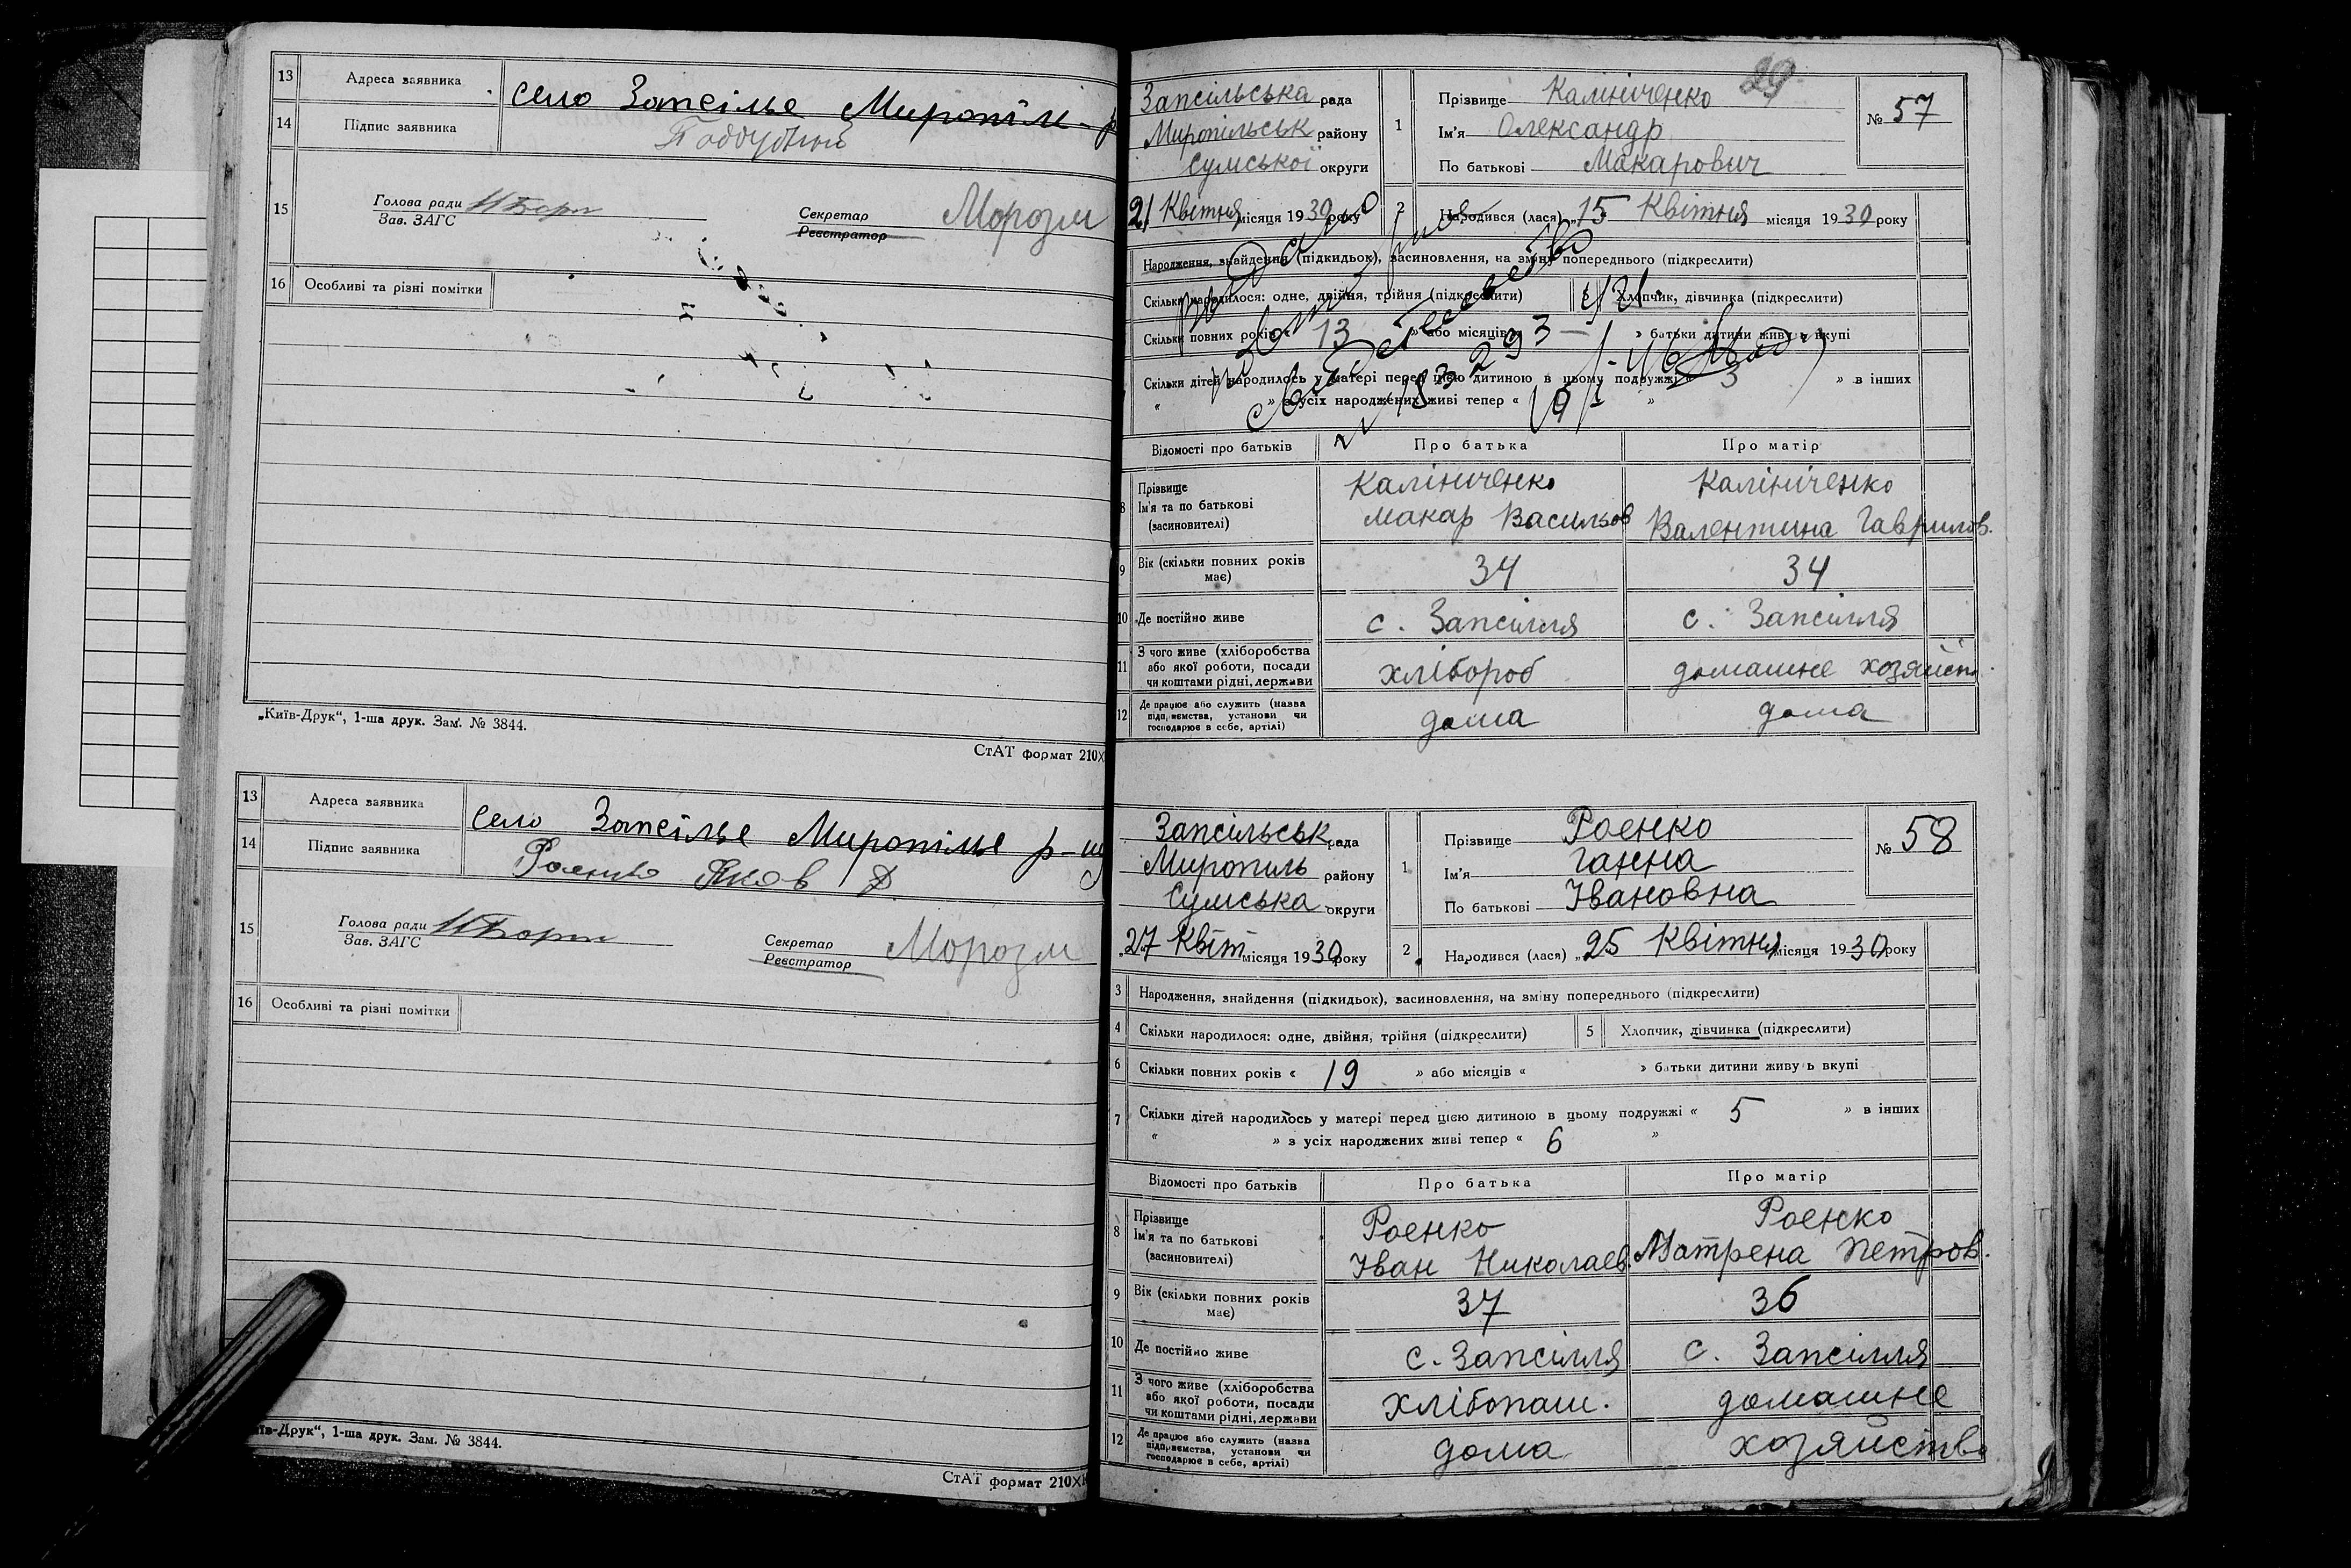 13 Адреса заявника село Запсілье Миропілс-р
14 Підпис заявника Поддубный
15 Голова ради
Зав. ЗАГС
Секретар
Реєстратор
16 Особливі та різні помітки
„Київ-Друк“, 1-ша друк. Зам. № 3844.
СтАТ формат 210X
13 Адреса заявника село Запсілье Миропілье р-ну
14 Підпис заявника Роенко Яков Д
15 Голова ради
Зав. ЗАГС
Секретар
Реєстратор
16 Особливі та різні помітки
їв-Друк“, 1-ша друк. Зам. № 3844.
СтАТ формат 210X
29
Запсільська рада
Миропільськ району
Сумської округи
21 Квітня місяця 1930 року
1 Прізвище Калініченко
Ім'я Олександр
По батькові Макарович
№ 57
2 Народився (лася) „15 Квітня місяця 1930 року
Народження, знайдення (підкидьок), засиновлення, на зміну попереднього (підкреслити)
Скільки народилося: одне, двійня, трійня (підкреслити) Хлопчик, дівчинка (підкреслити)
Скільки повних років « 13 » або місяців « — » батьки дитини живуть вкупі
Скільки дітей народилось у матері перед цією дитиною в цьому подружжі « 3 » в інших
« » з усіх народжених живі тепер « »
Відомості про батьків Про батька Про матір
8 Прізвище
Ім'я та по батькові
(засиновителі)
Калініченко
Макар Васильов
Калініченко
Валентина Гаврилов.
9 Вік (скільки повних років має) 34 34
10 Де постійно живе с. Запсілля с. Запсілля
11 З чого живе (хліборобства
або якої роботи, посади
чи коштами рідні, держави
хлібороб
домашнє хозяйств.
12 Де працює або служить (назва
підприємства, установи чи
господарює в себе, артілі)
дома
дома
Запсільськ рада
Мирополь району
Сумська округи
„27 Квіт місяця 1930 року
1 Прізвище Роенко
Ім'я Ганна
По батькові Івановна
№ 58
2 Народився (лася) „25 Квітня місяця 1930 року
3 Народження, знайдення (підкидьок), засиновлення, на зміну попереднього (підкреслити)
4 Скільки народилося: одне, двійня, трійня (підкреслити) 5 Хлопчик, дівчинка (підкреслити)
6 Скільки повних років « 19 » або місяців « » батьки дитини живуть вкупі
7 Скільки дітей народилось у матері перед цією дитиною в цьому подружжі « 5 » в інших
« » з усіх народжених живі тепер « 6 »
Відомості про батьків Про батька Про матір
8 Прізвище
Ім'я та по батькові
(засиновителі)
Роенко
Іван Николаев.
Роенко
Матрена Петров.
9 Вік (скільки повних років має) 37 36
10 Де постійно живе с. Запсілля с. Запсілля
11 З чого живе (хліборобства
або якої роботи, посади
чи коштами рідні, держави
хлібопаш.
домашнє
12 Де працює або служить (назва
підприємства, установи чи
господарює в себе, артілі)
дома
хозяйство